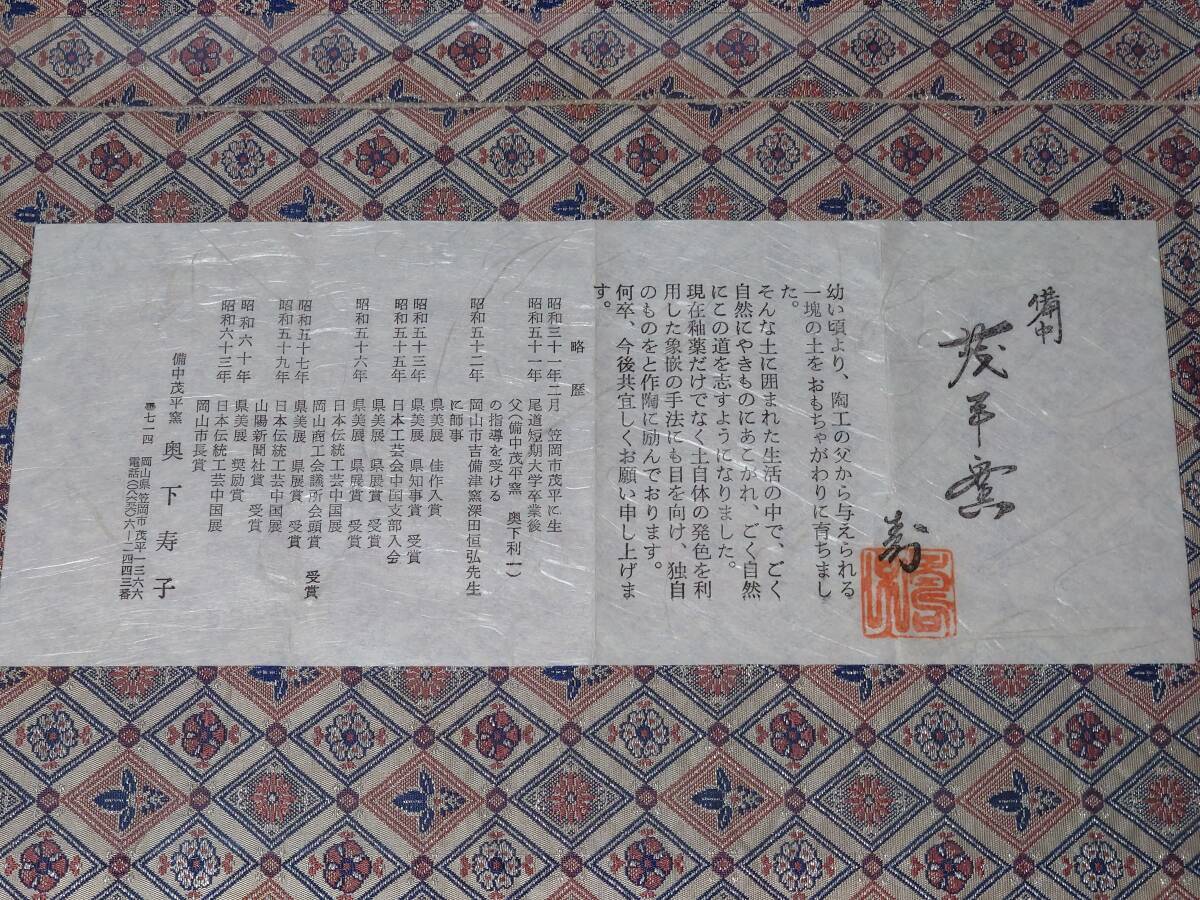 備中
茂平窯
寿
幼い頃より、陶工の父から与えられる
一塊の土をおもちゃがわりに育ちまし
た。
そんな土に囲まれた生活の中で、ごく
自然にやきものにあこがれ、ごく自然
にこの道を志すようになりました。
現在釉薬だけでなく土自体の発色を利
用した象嵌の手法にも目を向け、独自
のものをと作陶に励んでおります。
何卒、今後共宜しくお願い申し上げま
す。
略歴
昭和三十一年二月 笠岡市茂平に生
昭和五十一年 尾道短期大学卒業後
父(備中茂平窯 奥下利一)
の指導を受ける
昭和五十二年 岡山市吉備津窯深田恒弘先生
に師事
県美展 佳作入賞
昭和五十三年 県美展 県知事賞 受賞
昭和五十五年 日本工芸会中国支部入会
県美展 県展賞 受賞
昭和五十六年 県美展 県展賞 受賞
日本伝統工芸中国展
岡山商工会議所会頭賞 受賞
昭和五十七年 県美展 県展賞 受賞
昭和五十九年 日本伝統工芸中国展
山陽新聞社賞 受賞
昭和六十年 県美展 奨励賞
昭和六十三年 日本伝統工芸中国展
岡山市長賞
備中茂平窯 奥下寿子
〒七一四 岡山県笠岡市茂平一三六六
電話(〇八六五)六-二四四三番